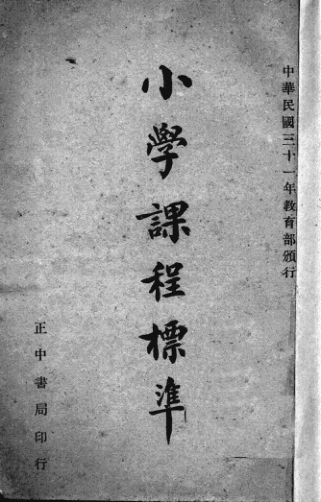 中華民國三十一年教育部頒行
小學課程標準
正中書局印行